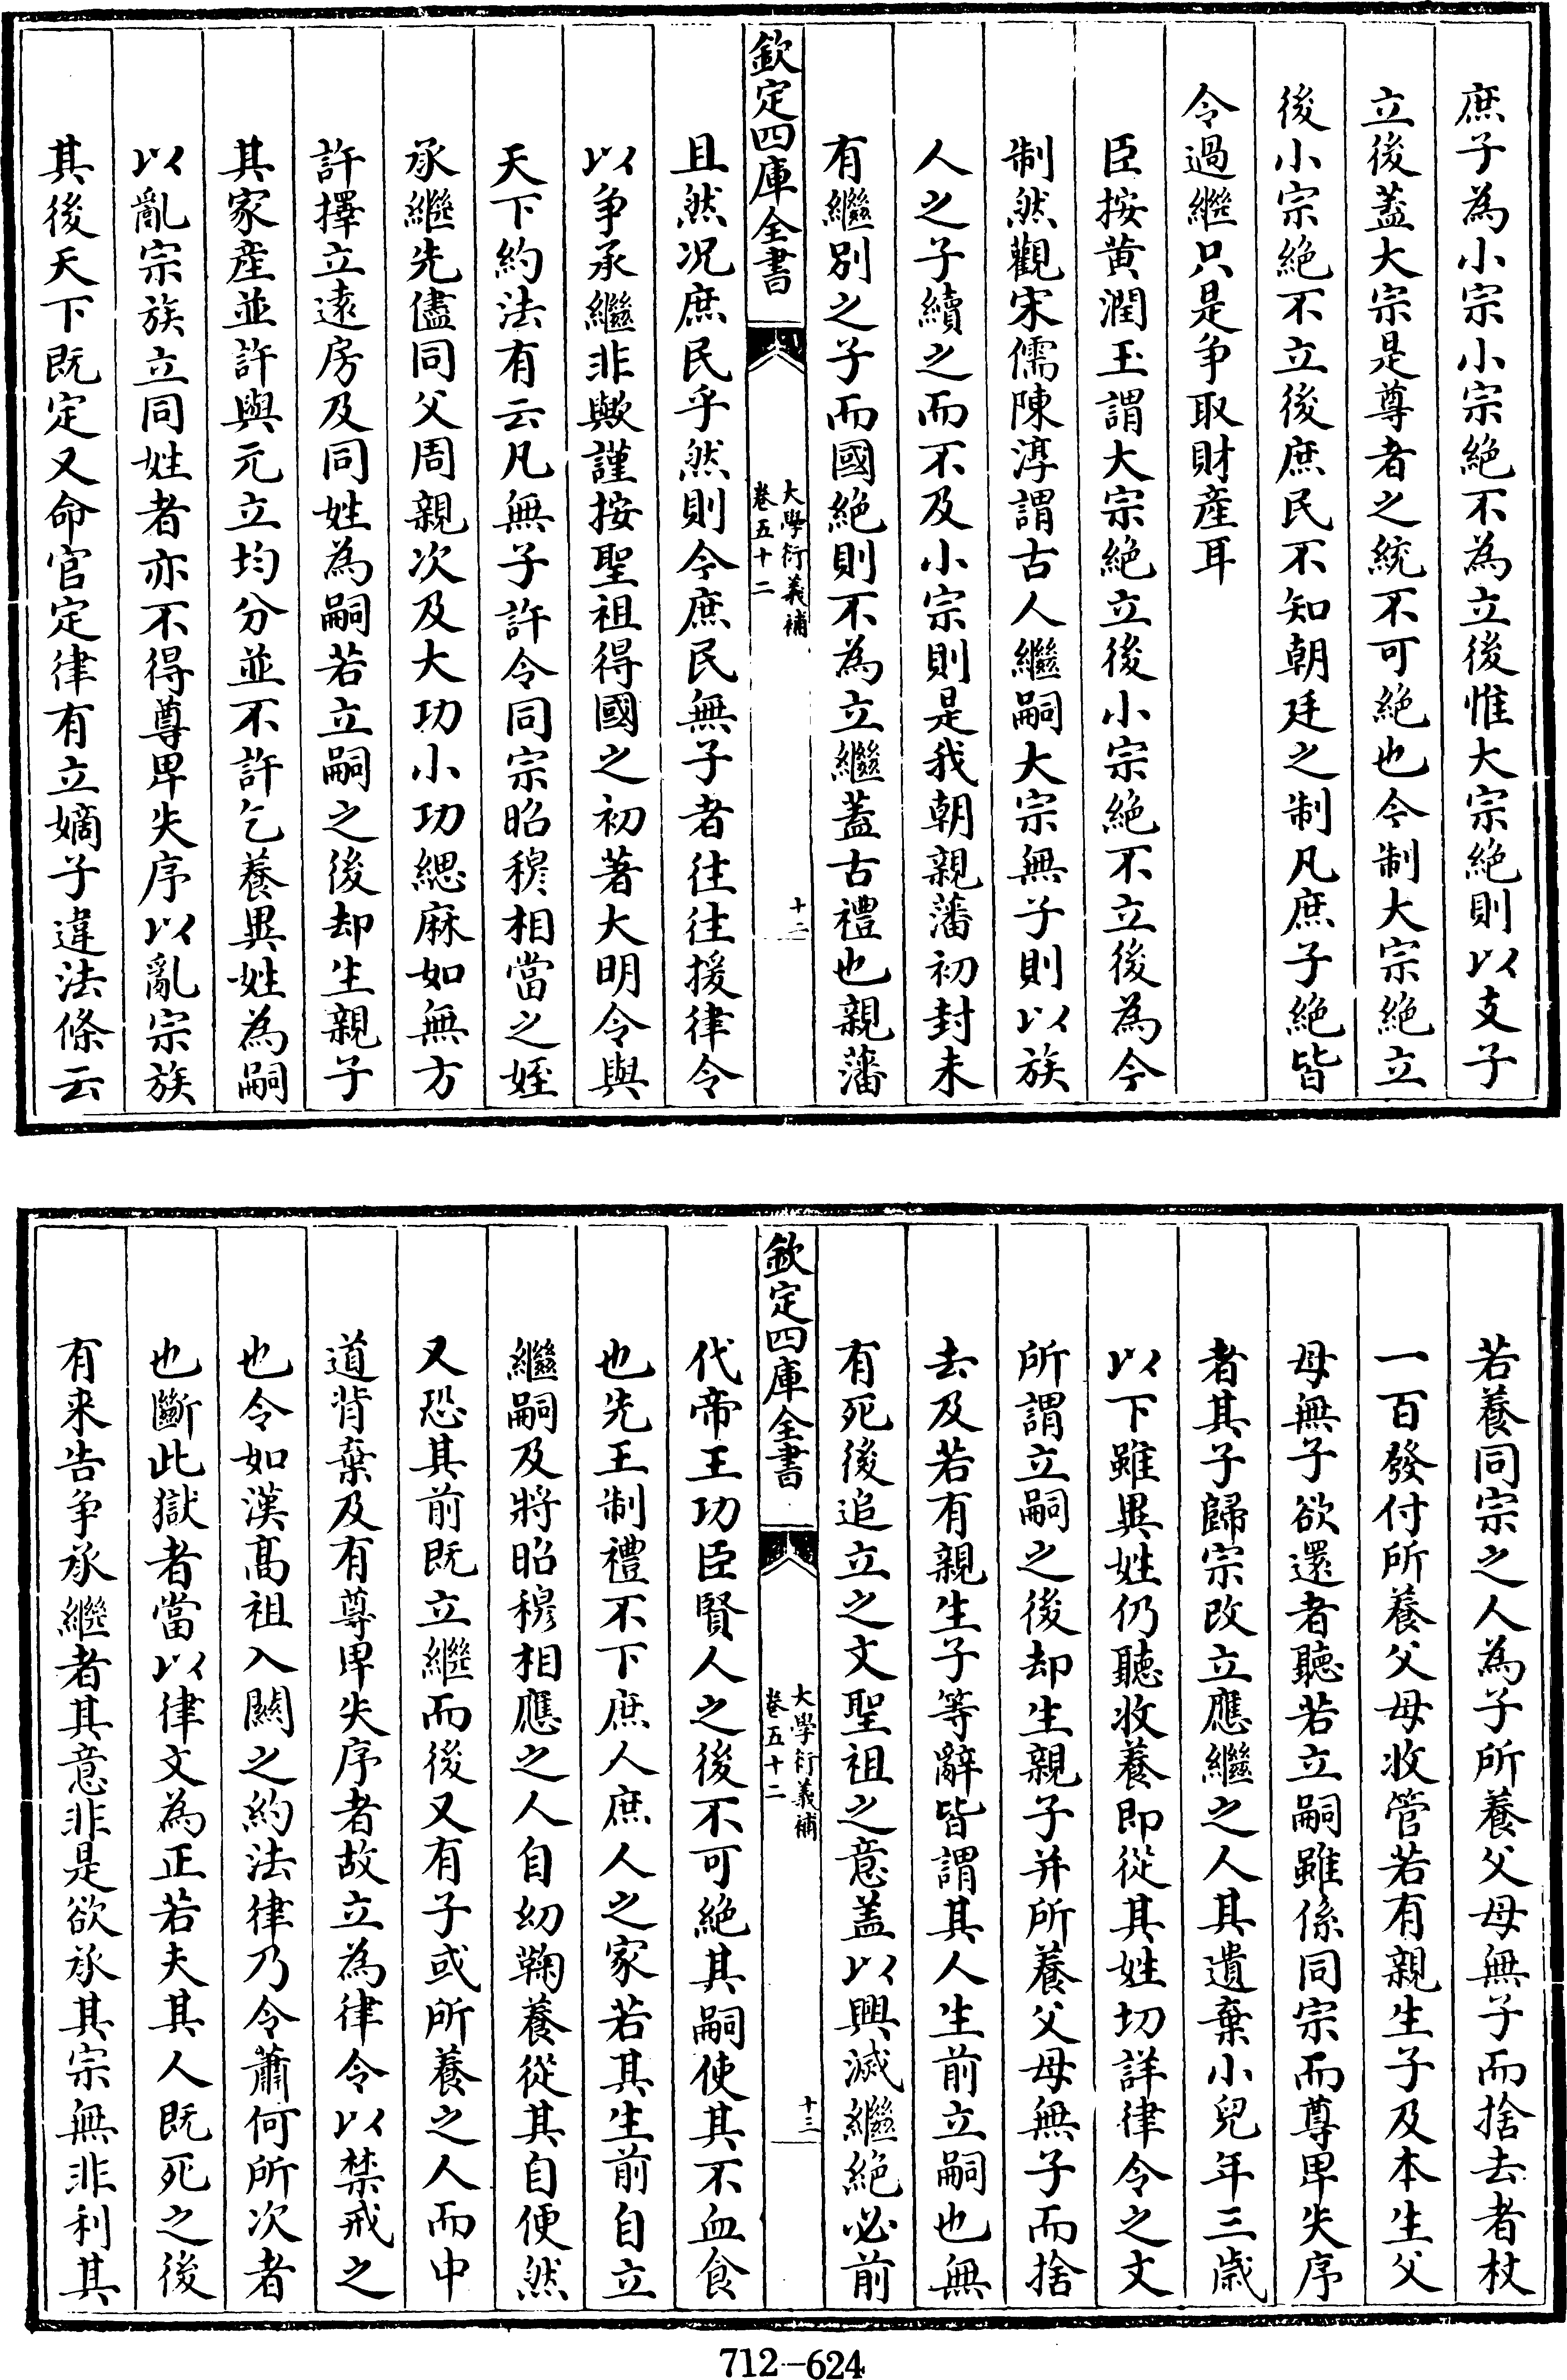 庶子為小宗小宗絶不為立後惟大宗絶則以支子
立後蓋大宗是尊者之統不可絶也今制大宗絶立
後小宗絶不立後庶民不知朝廷之制凡庶子絶皆
令過繼只是争取財産耳
臣按黄潤玉謂大宗絶立後小宗絶不立後為今
制然觀宋儒陳淳謂古人繼嗣大宗無子則以族
人之子續之而不及小宗則是我朝親藩初封未
有繼別之子而國絶則不為立繼蓋古禮也親藩
欽定四庫全書
大學衍義補
卷五十二
十二
且然况庶民乎然則今庶民無子者往往援律令
以争承繼非歟謹按聖祖得國之初著大明令與
天下約法有云凡無子許令同宗昭穆相當之姪
承繼先儘同父周親次及大功小功緦麻如無方
許擇立遠房及同姓為嗣若立嗣之後却生親子
其家産並許與元立均分並不許乞養異姓為嗣
以亂宗族立同姓者亦不得尊卑失序以亂宗族
其後天下既定又命官定律有立嫡子違法條云
若養同宗之人為子所養父母無子而捨去者杖
一百發付所養父母收管若有親生子及本生父
母無子欲還者聽若立嗣雖係同宗而尊卑失序
者其子歸宗改立應繼之人其遺棄小兒年三歲
以下雖異姓仍聽收養即從其姓切詳律令之文
所謂立嗣之後却生親子并所養父母無子而捨
去及若有親生子等辭皆謂其人生前立嗣也無
有死後追立之文聖祖之意蓋以興滅繼絶必前
欽定四庫全書
大學衍義補
卷五十二
十三
代帝王功臣賢人之後不可絶其嗣使其不血食
也先王制禮不下庶人庶人之家若其生前自立
繼嗣及將昭穆相應之人自幼鞠養從其自便然
又恐其前既立繼而後又有子或所養之人而中
道背棄及有尊卑失序者故立為律令以禁戒之
也令如漢髙祖入闗之約法律乃令蕭何所次者
也斷此獄者當以律文為正若夫其人既死之後
有来告争承繼者其意非是欲承其宗無非利其
712-624